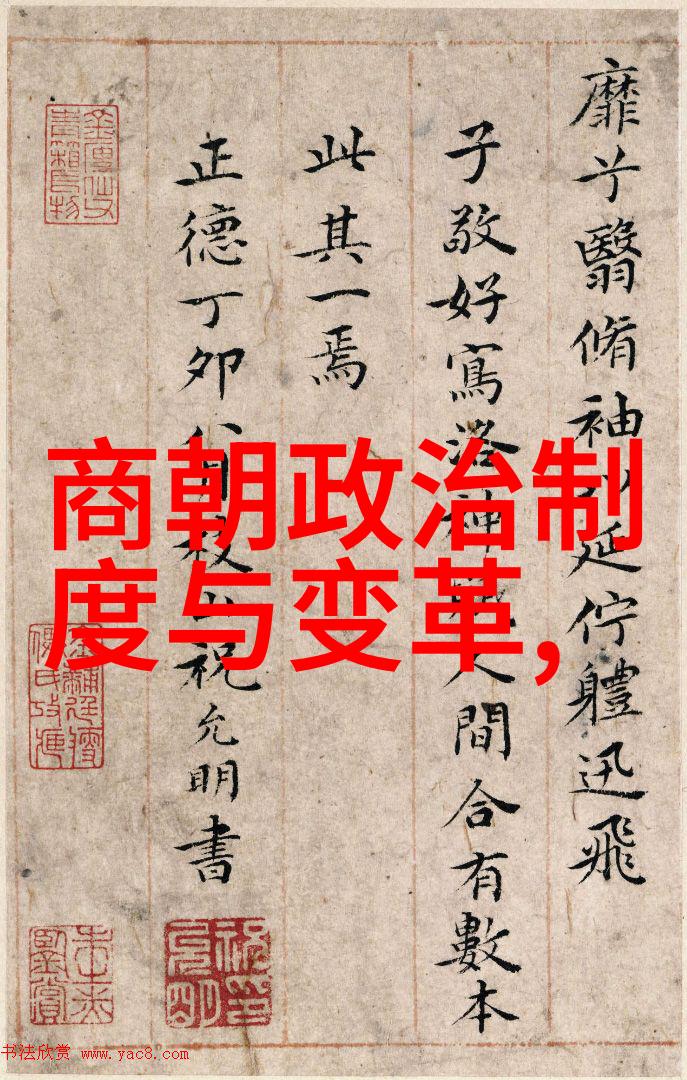 商朝政治制
度与变革,
靡兮翳脩袖以延佇體迅飛
子敬好寫洛神賦人間合有數本
此其一焉
正德丁卯八月枝山祝允明書
书法欣赏 www.yac8.com